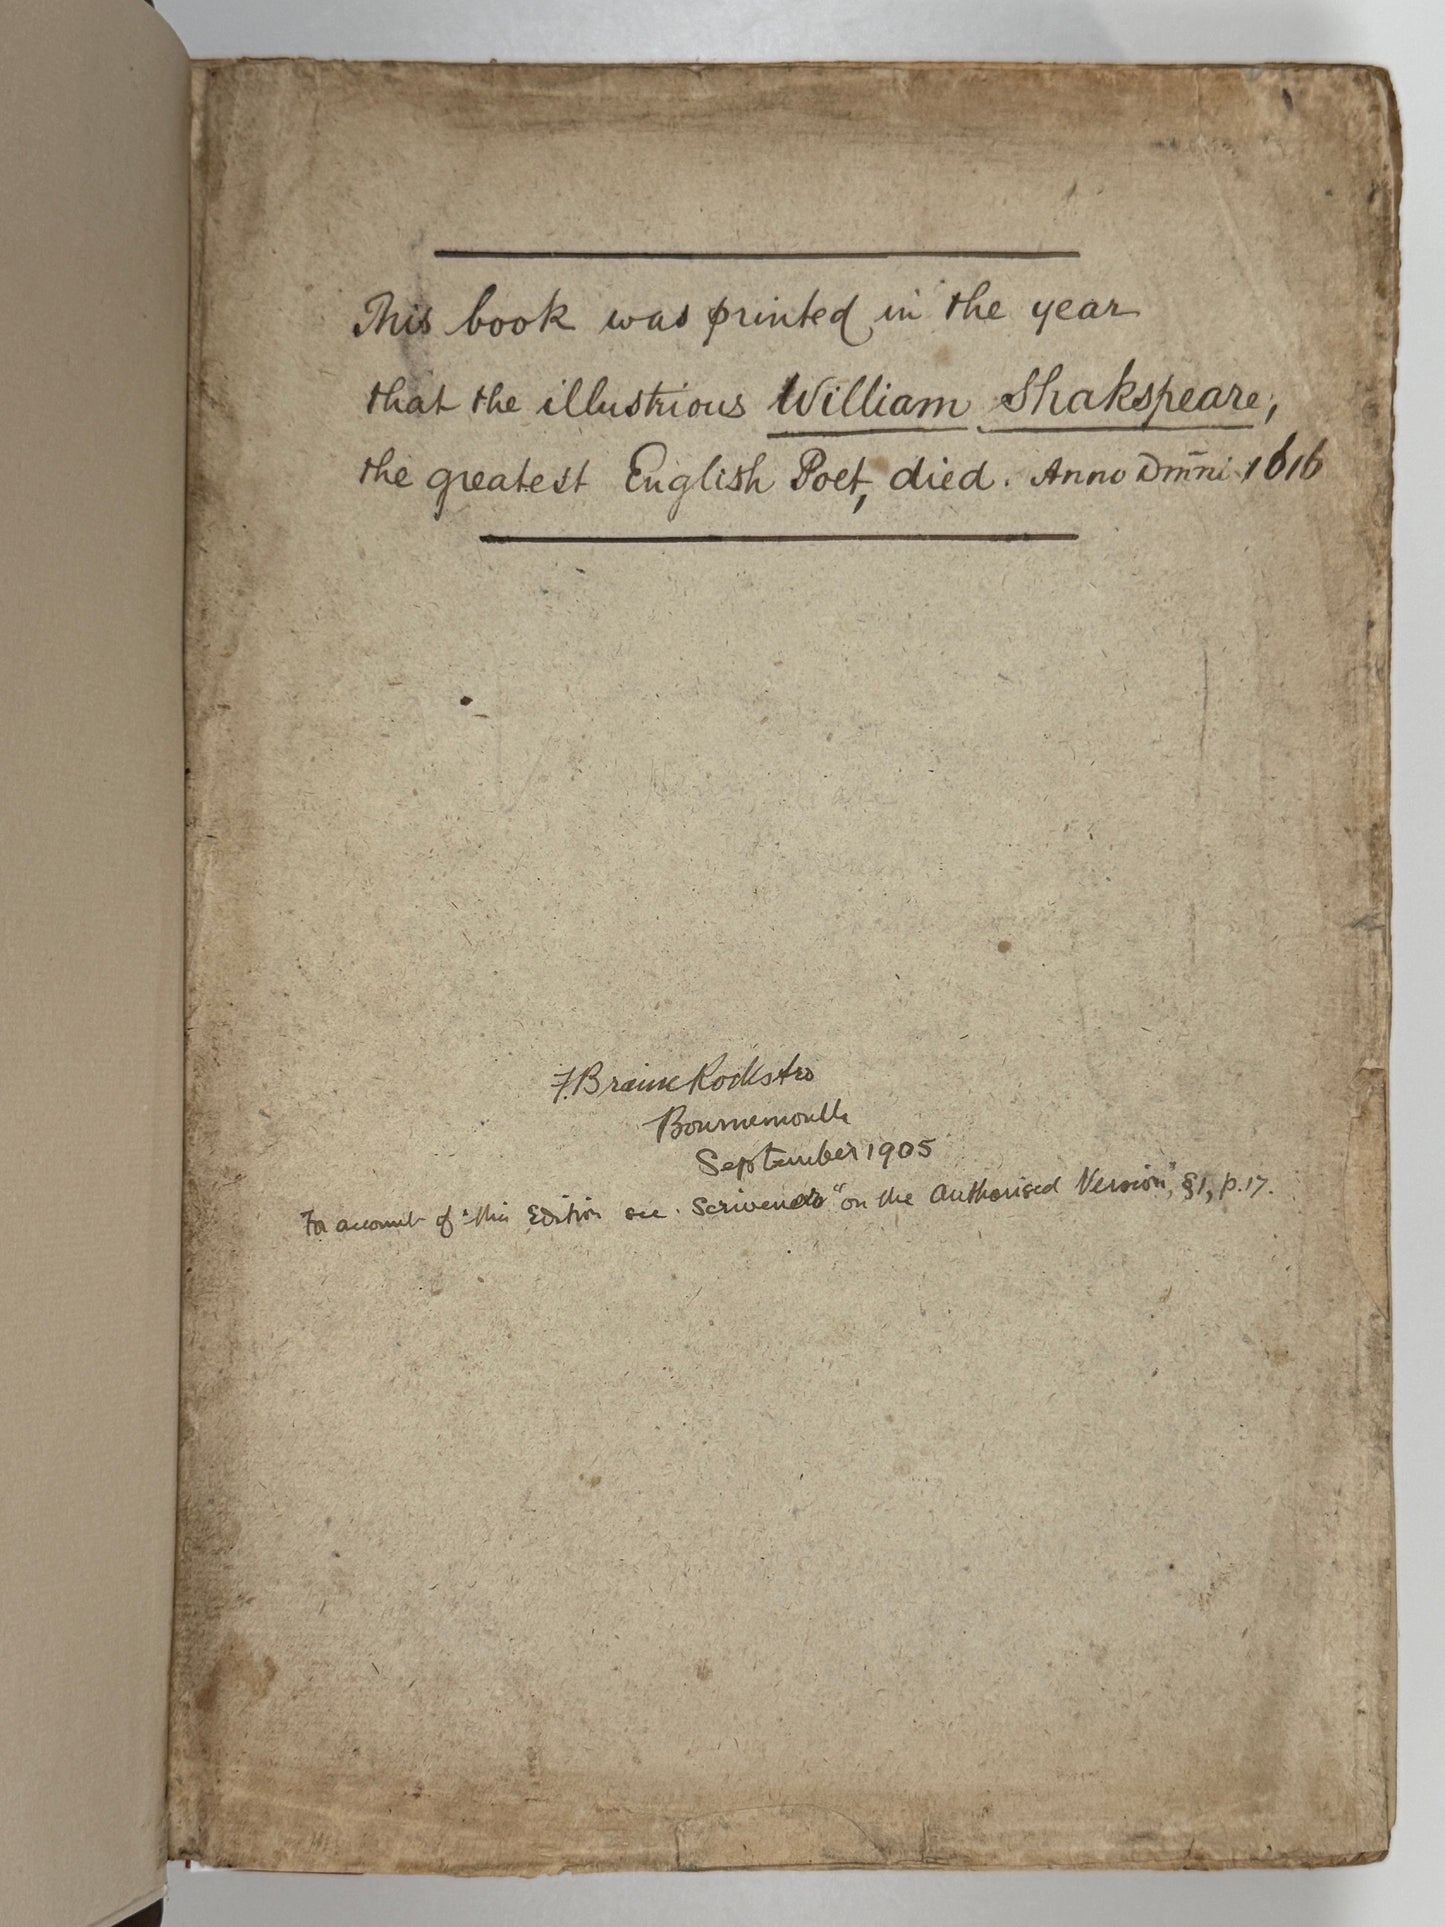 This book was printed in the year
that the illustrious William Shakspeare,
the greatest English Poet, died. Anno Dm̄ni 1616
F. Braine Rockstro
Bournemouth
September 1905
For account of this Edition see Scrivener "on the Authorised Version", §1, p.17.